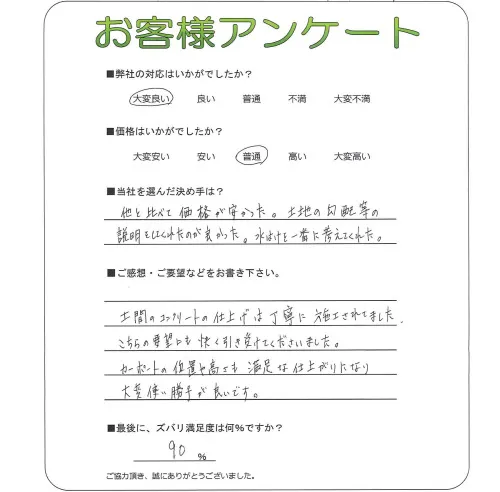 お客様アンケート
■弊社の対応はいかがでしたか？
大変良い 良い 普通 不満 大変不満
■価格はいかがでしたか？
大変安い 安い 普通 高い 大変高い
■当社を選んだ決め手は？
他と比べて価格が安かった。土地の勾配等の
説明をしてくれたのが良かった。水はけを一番に考えてくれた。
■ご感想・ご要望などをお書き下さい。
土間のコンクリートの仕上げは丁寧に施工されてました。
こちらの要望にも快く引き受けてくださいました。
カーポートの位置や高さも満足な仕上がりになり
大変使い勝手が良いです。
■最後に、ズバリ満足度は何%ですか？
90 %
ご協力頂き、誠にありがとうございました。